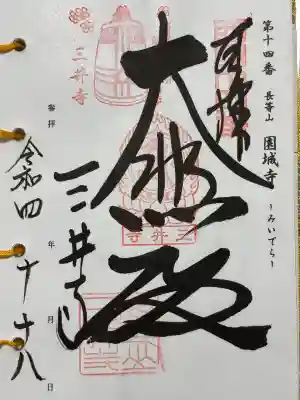 第十四番 長等山 園城寺 ~みいでら~
奉拝
大悲殿
三井寺
三井寺
三井寺
参拝 令和四年十月十八日